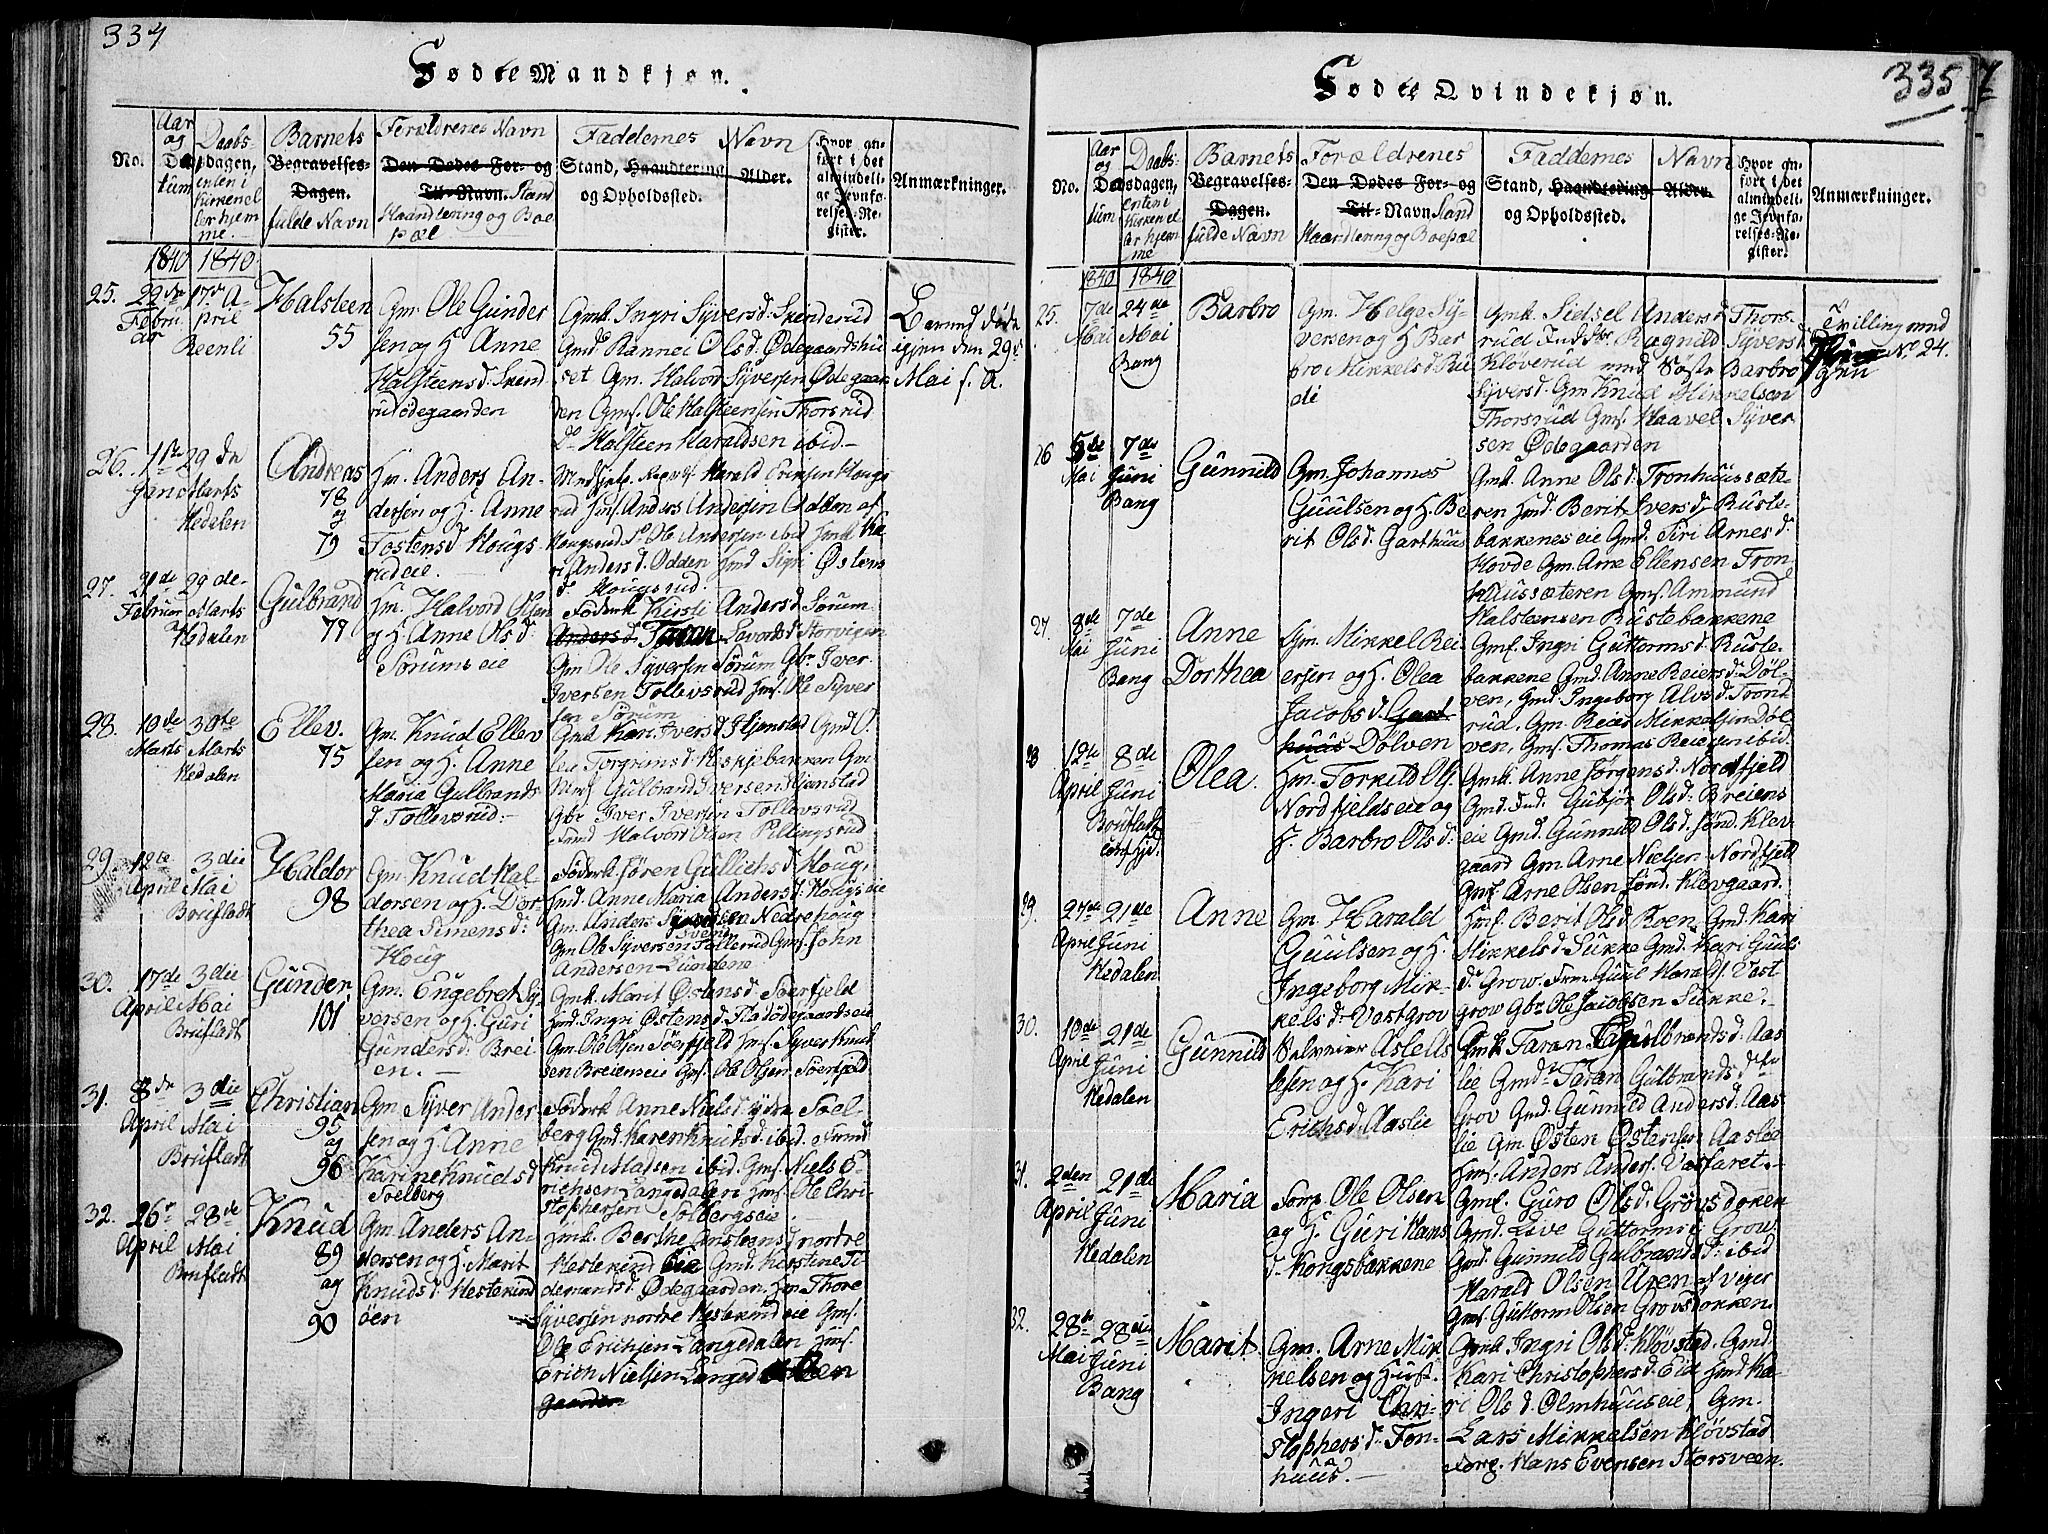 334
Fødte Mandkjøn.
No.
Aar og Datum
Daabsdagen, enten i Kirken eller hjemme.
Barnets Begravelses-Dagen. fulde Navn
Forældrenes Navn Den Dødes For- og Til-Navn. Stand Haandtering og Boepæl
Faddernes Navn Stand, Haandtering og Opholdssted. Alder.
Hvor anført i det almindelige Jevnførelses-Register.
Anmærkninger.
1840 1840
25. 29de Februar
17de April
Reenli
Halsteen
55
Gm. Ole Gunder
sen og H. Anne
Halsteensd. Skind
rudødegaarden
Gmk. Ingri Syversd. Skinderud
Gmd. Rannei Olsd. Ødegaardshu
set Gm. Halvor Syversen Ødegaar
den Gms. Ole Halsteensen Thorsrud
Do Halsteen Haraldsen ibid
Er med døde
igjen den 29.
Mai s. A.
26. 1ste
Jan
29de
Marts
Hedalen
Andreas
78
og
79
Hm. Anders An-
dersen og H. Anne
Tostensd. Hougs
rudeie.
rud Hms. Anders Andersen Odden af
Hougsrud Do Ole Andersen ibid Hmk Ka
ri Andersd. Odden Hmd Sigri Østens
d. Hougsrud.
27. 21de
Februar
29de
Marts
Hedalen
Gulbrand
79
Hm. Halvord Olsen
og H. Anne Olsd:
Sørumseie
Føderk Kirsti Andersd. Sørum
Taran Lavordsd. Storvigen
Gm Ole Syversen Sørum Gbr. Iver
Iversen Tollevsrud Hms. Ole Syver
sen Sørum
28. 10de
Marts
30te
Marts
Hedalen
Ellev.
75
Gm. Knud Ellev
sen og H. Anne
Maria Gulbrands
d. Tollevsrud.
Gmk Kari Iversd. Hjemstad Gmd. O.
lea Torgrimsd. Heskjebakken Gm
Gulbrand Iversen Hjemstad
Gbr Iver Iversen Tollevsrud
Halvor Olsen Pillingsrud
29. 12te
April
3die
Mai
Brufladt
Haldor
98
Gm. Knud Hal-
dorsen og H. Dor-
thea Simensd:
Houg
Føderk Jøren Gullichsd. Houg,
Hmd. Anne Maria Andersd: Hougseie
Gm. Anders Syversen Nedrehoug
Gm Ole Syversen Tollerud Gms. John
Andersen Lundene
30. 17de
April
3die
Mai
Bruflat
Gunder
101
Gm. Engebret Sy-
versen og H. Guri
Gundersd: Brei-
en.
Gmk. Marit Østensd. Soerfjeld
Hmd. Ingri Østensd. Fladødegaardseie
Gm. Ole Olsen Sørfjeld Hms. Syver Knud
sen Breienseie Gms. Ole Olsen Søerfjeld
31. 8de
April
3die
Mai
Bruflat
Christian
95
og
96
Gm. Syver Ander
sen og H. Anne
Karine Knudsd
Soelberg
Føderk Anne Nielsd ydre Soel-
berg Gmd. Karen Knutsd. ibid.
Knud Madsen ibid. Gms. Niels E-
richsen Langedalen Hms. Ole Chri-
stophersen Solbergseie
32. 26de
April
28de
Mai
Bruflat
Knud
89
og
90
Gm. Anders An-
dersen og H. Marit
Knudsd. Hestekind
øen
Hmk. Berthe nordre
Hestekind Eie Gmd. Kirstine Ti-
demandsd. Ødegaarden. Hm Thore
Syversen nordre Hestekindeie Gms.
Ole Erichsen Langedalen Hms.
Erich Nielsen Langed
gaarden
335
Fødte Qvindekjøn.
No.
Aar og Datum
Daabsdagen, enten i Kirken eller hjemme
Barnets Begravelses-Dagen. fulde Navn
Forældrenes Den Dødes For- og Til-Navn Stand Haandtering og Boepæl
Faddernes Navn Stand, Haandtering og Opholdssted. Alder.
Hvor anført i det almindelige Jevnførelses-Register.
Anmærkninger.
1840 1840
25. 7de
Mai
24de
Mai
Bang
Barbro
Gm. Helge Sy-
versen og H Bar
bro Mikkelsd. Ru
di
Gmk. Sidsel Andersd Thors-
rud Ind. Ragnild Syversd
Kløverud med Søster Barbro
Syversd. Gm Knud Mikkelsen
Thorsrud Gms. Haavel Syver
sen Ødegaarden
Tvilling med
No. 24.
26 5de
Mai
7de
Juni
Bang
Gunnild
Gm. Johannes
Guulsen og H. Be
rit Olsd. Garthuus
Gmk. Anne Olsd. Tronhuussæte-
ren Hmd. Berit Iversd. Ruste-
bakkenes eie Gmd. Siri Arnesd.
Hovde Gm. Arne Ellensen Tron
huussæteren Gms. Ammund
Halsteensen Rustebakkene
27. 9de
Mai
7de
Juni
Bang
Anne
Dorthea
Gm. Mikkel Rei
ersen og H. Olea
Jacobsd. Gart
huus Dølven
Gmk. Ingri Guttormsd. Ruste-
bakkene Gmd. Anne Reiersd. Døl-
ven, Gmd Ingeborg Alvsd. Trond
rud, Gm. Reier Mikkelsen Døl
ven, Gms. Thomas Reiersen ibid
28 12te
April
8de
Juni
Bruflat
Olea.
Hm. Torkild Ols.
Nordfjeldseie og
H. Barbro Olsd:
Gmk. Anne Jørgensd. Nordfjeld
Gmd. Gubjør Olsd: Breiens
eie Gmd. Gunnild Olsd. sønd. Klev
gaard Gm. Arne Nielsen Nordfjeld
Gms Arne Olsen sønd. Klevgaard.
29. 27de
April
21de
Juni
Hedalen
Anne
Gm. Harald
Guulsen og H.
Ingeborg Mik-
kelsd: Vestgrov
Hmk. Berit Olsd. Roen Gmd. Kari
Mikkelsd. Sukke Gmd. Kari Guuls
d. Grow. Guul Harals. Vest
grow Gbr. Ole Jacobsen Sukke.
30. 10de
April
21de
Juni
Hedalen
Gunnild
Selveier Asle Ells
lesen og H. Kari
Erichsd. Aaslie
Gmk Taran Gulbrandsd. Aas
lie Gmd. Taran Gulbrandsd.
Grov Gmd. Gunnild Andersd. Aas
lie Gm. Østen Østensen Aaslie
Hms. Anders Anders. Vasfaret.
31. 2den
April
21de
Juni
Hedalen
Maria
Forp. Ole Olsen
og H. Guri Hans
d. Kongsbakkene
Gmk. Guro Olsd. Grovsdokken
Gmd. Live Guttormsd. Grov
Gmd. Gunnild Gulbrandsd. ibid
Harald Olsen Uren af viger
Gms. Guttorm Olsen Grovsdokken.
32. 28de
Mai
28de
Juni
Bang
Marit.
Gm. Arne Mik
kelsen og Hust.
Ingeri Chri-
stophersd. Fon-
huus.
Gmk Ingri Olsd. Kløvstad. Gmd
Kari Christophersd. Eid Hmd Ka-
ri Olsd. Olmhuuseie, Gm.
Lars Mikkelsen Kløvstad
Forp. Hans Evensen Storsveen